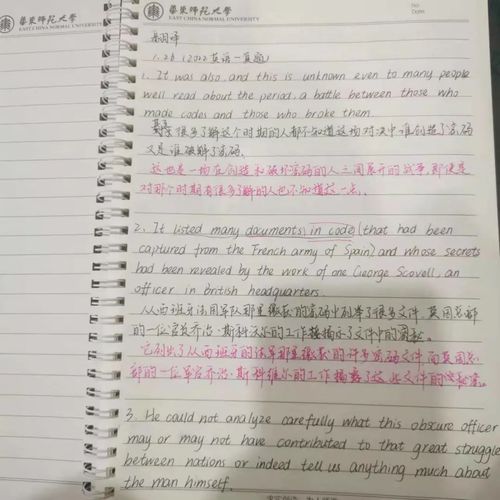 華東師範大學
EAST CHINA NORMAL UNIVERSITY
華東師範大學
EAST CHINA NORMAL UNIVERSITY
No
Date
1.26 (2022英语一真题)
1. It was also, and this is unknown even to many people
well read about the period, a battle between those who
made codes and those who broke them.
很多了解这个时期的人都不知道这场对决中谁创造了密码
又是谁破解了密码.
这也是一场在创造和破坏密码的人之间展开的战争,即使是
对那个时期有很多了解的人也不知道这一点.
2. It listed many documents in code (that had been
captured from the French army of Spain) and whose secrets
had been revealed by the work of one George Scovell, an
officer in British headquarters.
从西班牙法国军队那里缴获的密码中列举了很多文件, 英国总部
的一位官员乔治·斯科沃尔的工作揭示了文件中的
它列出了从西班牙的法军那里缴获的许多密码文件 而英国总
部的一位军官乔治·斯科维尔的工作揭露了这些文件的
3. He could not analyze carefully what this obscure officer
may or may not have contributed to that great struggle
between nations or indeed tell us anything much about
the man himself.